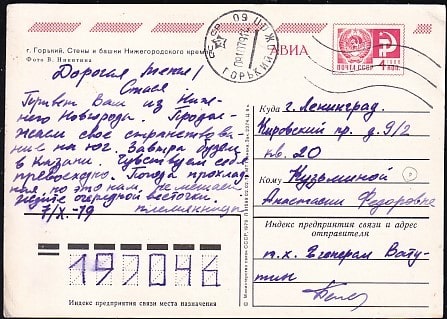 г. Горький. Стены и башни Нижегородского кремля
Фото В. Никитина
АВИА
ПОЧТА СССР
4 КОП
ГОРЬКИЙ
Дорогая тетя
Стася!
Привет Вам из Ниж-
него Новгорода. Продол-
жаем свое странствова-
ние на юг. Завтра будем
в Казани. Чувствуем себя
превосходно. Погода прохлад-
ная, но это нам не мешает.
Ждите очередной весточки.
7/X-79 племянница
Куда г. Ленинград.
Кировский пр. д. 9/2
кв. 20
Кому Кузьминой
Анастасии Федоровне
Индекс предприятия связи и адрес
отправителя
т.х. Генерал Вату-
тин
197046
Индекс предприятия связи места назначения